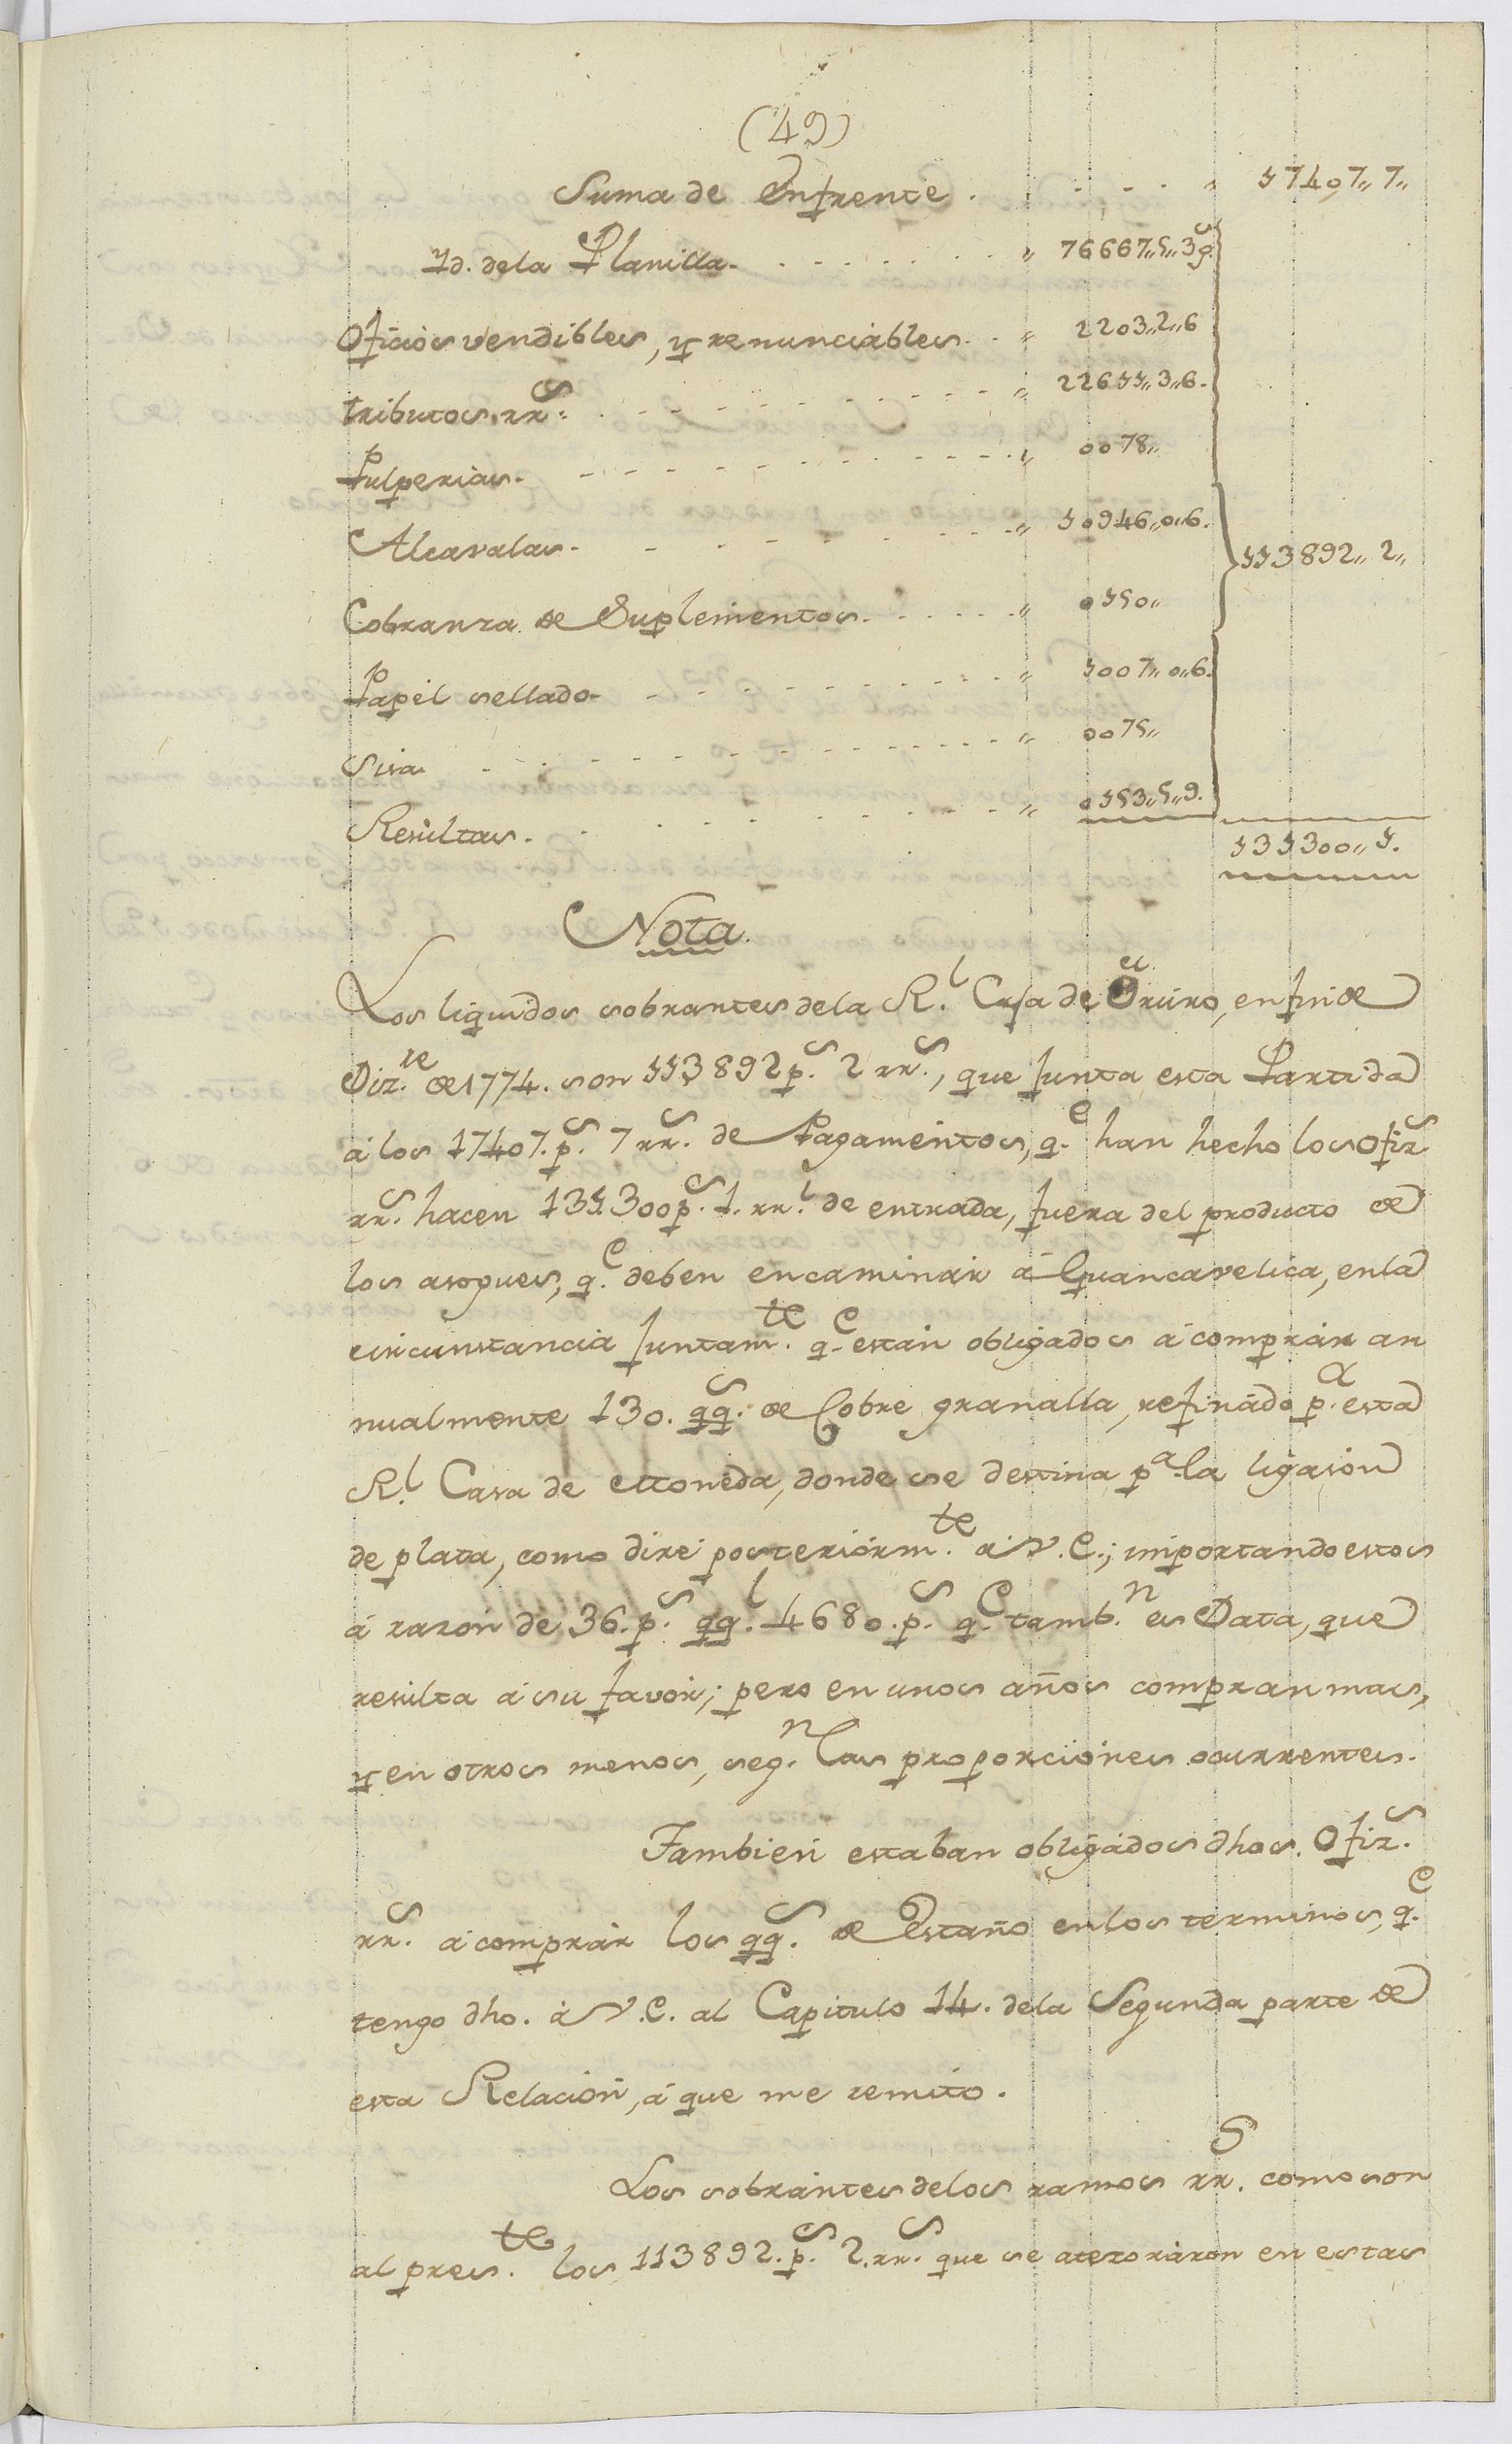 (49)
Suma de Enfrente . . . . . " 17407,, 7,,
Id. dela Planilla. . . . . . . . . " 76667,,5,,3q.s
Oficios vendibles, y renunciables. . " 2203,,2,,6
tributos rr.s . . . . . . . . . . " 22611,,3,,6.
Pulperias. . . . . . . . . . . " 0078,,
Alcavalas. . . . . . . . . . " 10946,,0,,6.
113892,, 2,,
Cobranza de Suplementos. . . . . . " 0150,,
Papel sellado. . . . . . . . . . " 1007,,0,,6.
Sisa . . . . . . . . . . . " 0075,,
Resultas. . . . . . . . . . " 0153,,5,,9.
131300,, 1.
Nota.
Los liquidos sobrantes dela R.l Caja de Oruro, en fin de
Diz.re de 1774. son 113892 p.s 2 rr.s, que junta esta Partida
á los 17407. p.s 7 rr.s de Pagamentos, q.e han hecho los Ofiz.s
rr.s hacen 131300 p.s 1. rr.l de entrada, fuera del producto de
los asogues, q.e deben encaminar á Guancavelica, en la
circunstancia juntam.te q.e estan obligados á comprar an
nualmente 130. qq.s de Cobre granalla, refinado p.a esta
R.l Casa de Moneda, donde se destina p.a la ligasion
de plata, como diré posteriorm.te a V.E.; importando estos
á razon de 36. p.s qq.l 4680. p.s q.e tamb.n es Data, que
resulta á su favor; pero en unos años compran mas,
y en otros menos, seg.n las proporciones ocurrentes.
Tambien estaban obligados dhos. Ofiz.s
rr.s á comprar los qq.s de Estaño en los terminos, q.e
tengo dho. á V.E. al Capitulo 14. dela Segunda parte de
esta Relacion, á que me remito.
Los sobrantes delos ramos rr.s como son
al pres.te los 113892. p.s 2. rr.s que se atezoraron en estas